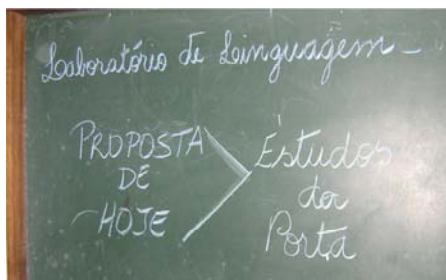 Laboratório de Linguagem -
PROPOSTA
DE
HOJE
Estudos
da
Porta